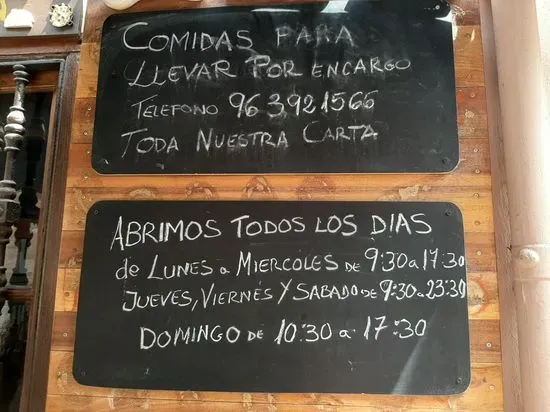 COMIDAS PARA
LLEVAR POR ENCARGO
TELEFONO 96 3921566
TODA NUESTRA CARTA
ABRIMOS TODOS LOS DIAS
de LUNES a MIERCOLES DE 9:30 a 17:30
JUEVES, VIERNES Y SABADO DE 9:30 a 23:30
DOMINGO DE 10:30 a 17:30